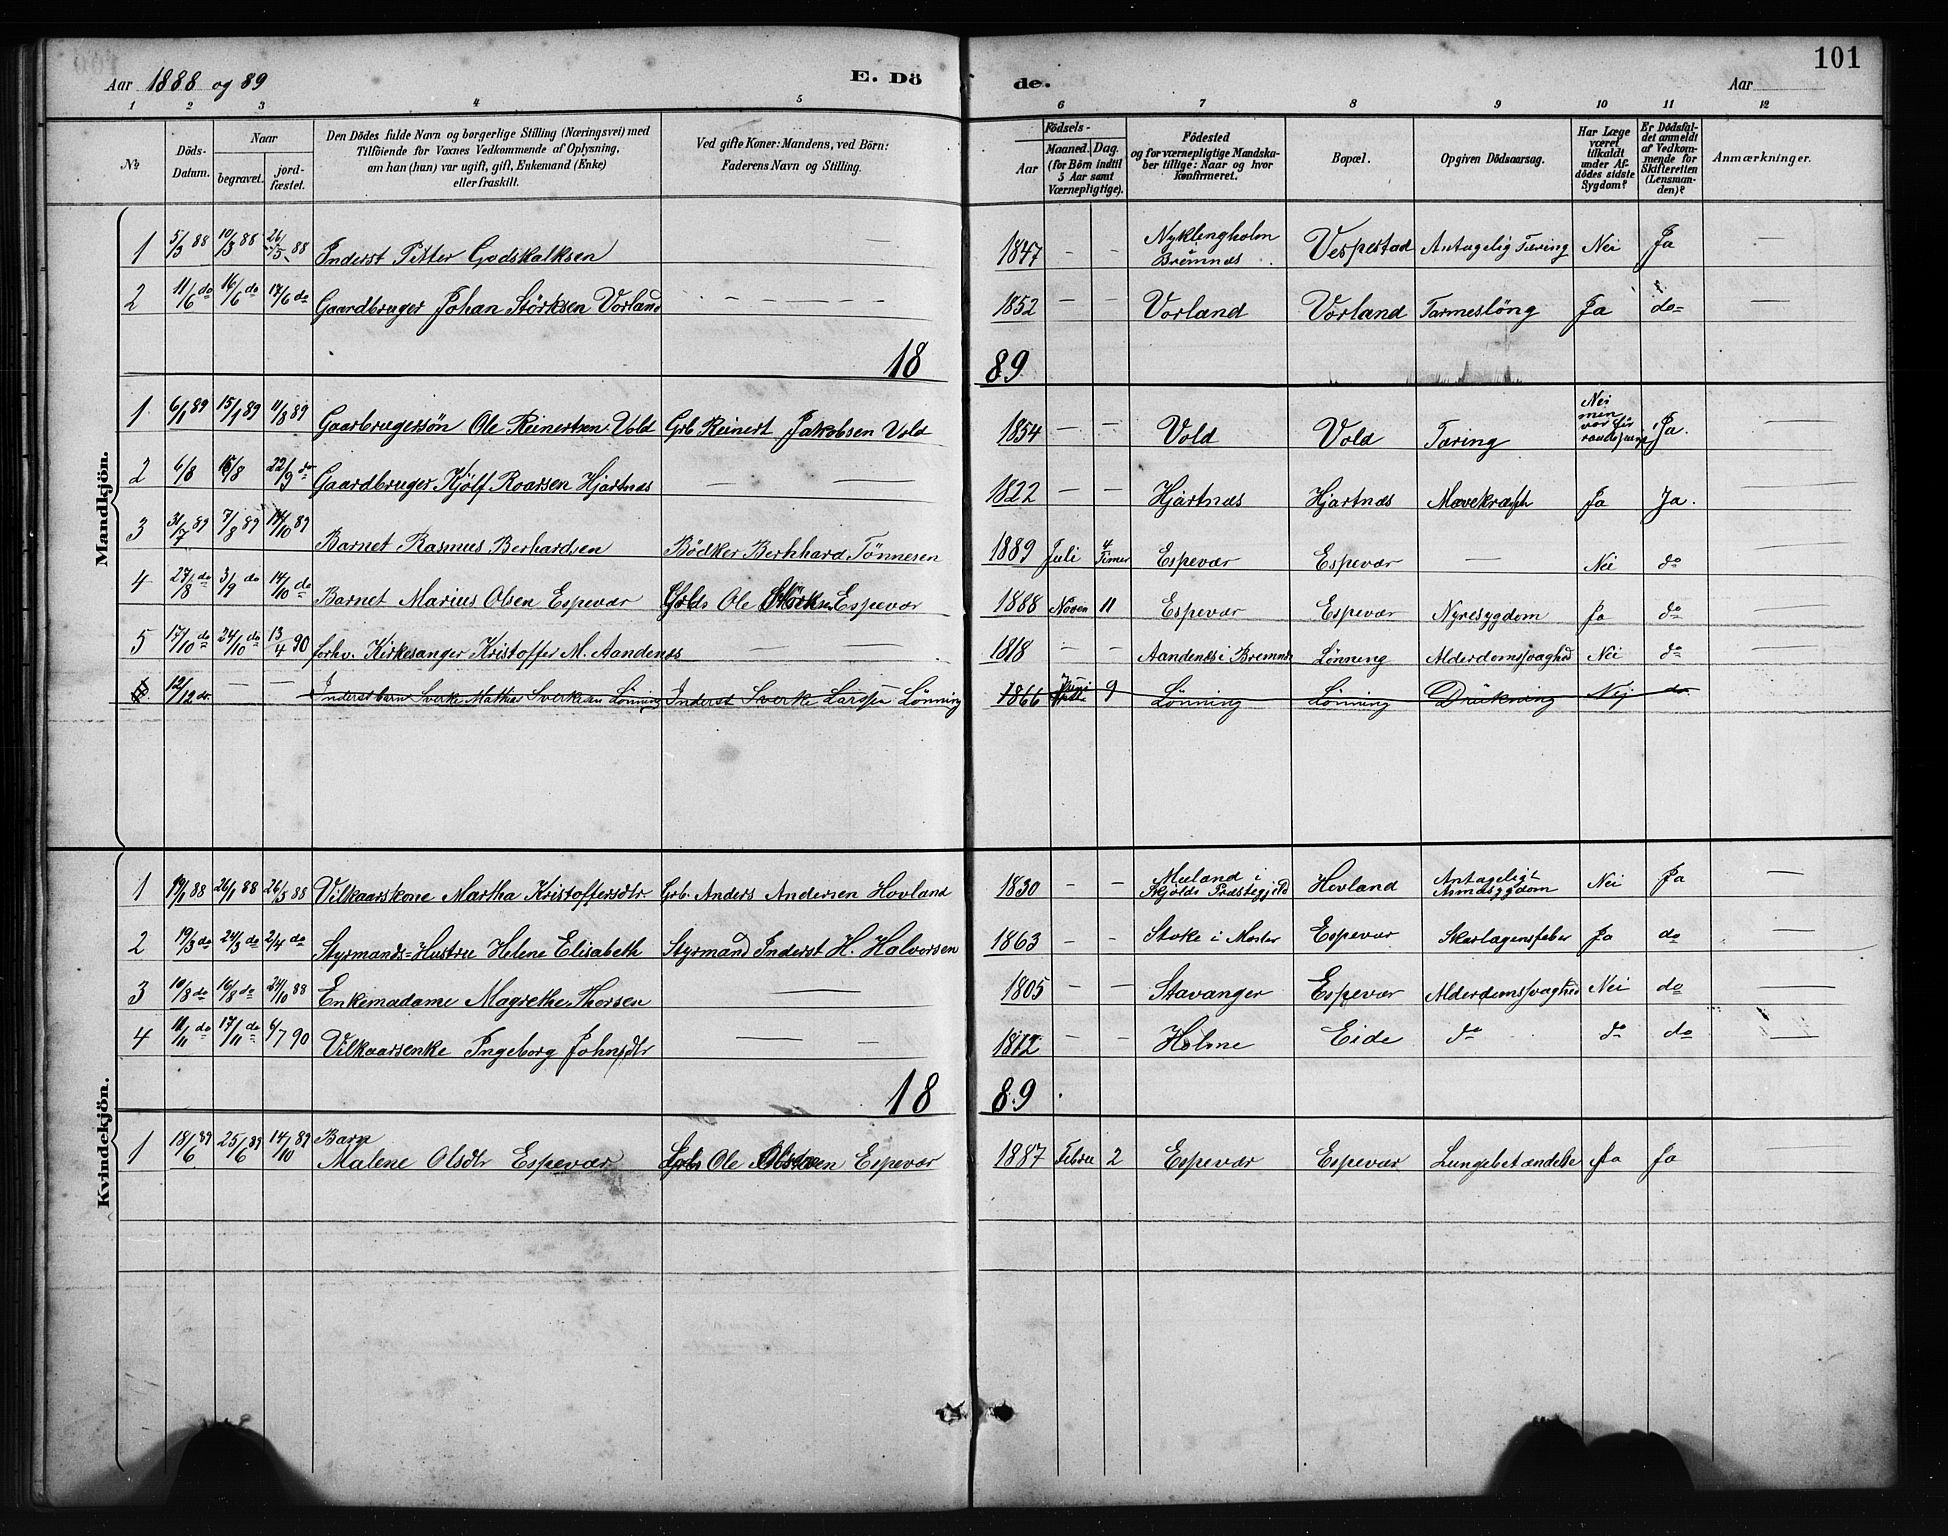 101
Aar 1888 og 89 E. Dö de. Aar
1 2 3 4 5 6 7 8 9 10 11 12
№ Döds-Datum. Naar begravet. jord-fæstet. Den Dödes fulde Navn og borgerlige Stilling (Næringsvei) med Tilföiende for Voxnes Vedkommende af Oplysning, om han (hun) var ugift, gift, Enkemand (Enke) eller fraskilt. Ved gifte Koner: Mandens, ved Börn: Faderens Navn og Stilling. Födsels- Aar Maaned. Dag. (for Börn indtil 5 Aar samt Værnepligtige). Födested og for værnepligtige Mandskaber tillige: Naar og hvor konfirmeret. Bopæl. Opgiven Dödsaarsag. Har Læge været tilkaldt under Afdödes sidste Sygdom? Er Dödsfaldet anmeldt af Vedkommende for Skifteretten (Lensmanden)? Anmærkninger.
Mandkjön.
1 5/3 88 10/3 88 26/5 88 Inderst Petter Godskalksen — 1847 - - Nyklengholm Bremnæs Vespestad Antagelig Tæring Nei Ja —
2 11/6 do 16/6 do 17/6 do Gaardbruger Johan Störksen Vorland - - - - 1852 - - Vorland Vorland Tarmeslöng Ja do —
18 89
1 6/1 89 15/1 89 11/8 89 Gaarbrugersön Ole Reinertsen Vold Grb Reinert Jakobsen Vold 1854 - - Vold Vold Tæring Nei men var Ja. —
2 6/8 15/8 22/9 do Gaardbruger Kjölf Roarsen Hjartnæs — — 1822 - - Hjartnæs Hjartnæs Mavekræft Ja Ja. —
3 31/7 89 7/8 89 14/10 89 Barnet Rasmus Berhardsen Bödker Bernhard Tönnesen 1889 Juli 4 Timer Espevær Espevær — Nei do —
4 27/8 do 3/9 do 14/10 do Barnet Marius Olsen Espevær Ole Espevær 1888 Novem 11 Espevær Espevær Nyresygdom Ja do —
5 17/10 do 24/10 do 13/4 90 forhv. Kirkesanger Kristoffer M. Aandenæs — — 1818 - - Aandenæs i Bremnæs Lönning Alderdomssvaghed Nei do —
12/12 do. — — Inderst barn Sverke Mathias Sverkesen Lönning Inderst Sverke Larssen Lönning 1866 Juni 9 Lönning Lönning Drukning Nej do
Kvindekjön.
1 19/1 88 26/1 88 26/5 88 Vilkaarskone Martha Kristoffersdtr. Grb. Anders Andersen Hovland 1830 - - Mæland i Skjolds Præstegjeld Hovland Antageligt Nei Ja —
2 19/3 do 24/3 do 2/4 do Styrmands-Hustru Helene Elisabeth Styrmand Inderst H. Halvorsen 1863 - - Stoke i Moster Espevær Skarlagensfeber Ja do —
3 10/8 do 16/8 do 24/10 88 Enkemadame Magrethe Thorsen — 1805 - - Stavanger Espevær Alderdomssvaghed Nei do —
4 11/11 do 17/11 do 6/7 90 Vilkaarsenke Ingeborg Johnsdtr — — 1812 - - Holme Eide do do do —
18 89
1 18/6 89 25/6 89 14/10 89 Barn Malene Olsdtr Espevær Ole Espevær 1887 Febru 2 Espevær Espevær Lungebetændelse Ja Ja —